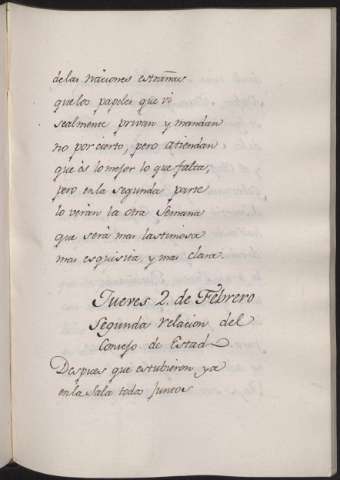 de las naciones estrañas
que los papeles que vi
realmente privan y mandan
no por cierto, pero atiendan
que és lo mejor lo que falta,
pero en la segunda parte
lo verán la otra Semana
que será mas lastimosa
mas esquisita, y mas clara.
Jueves 2. de Febrero
Segunda relacion del
Consejo de Estado
Despues que estubieron ya
en la Sala todos juntos